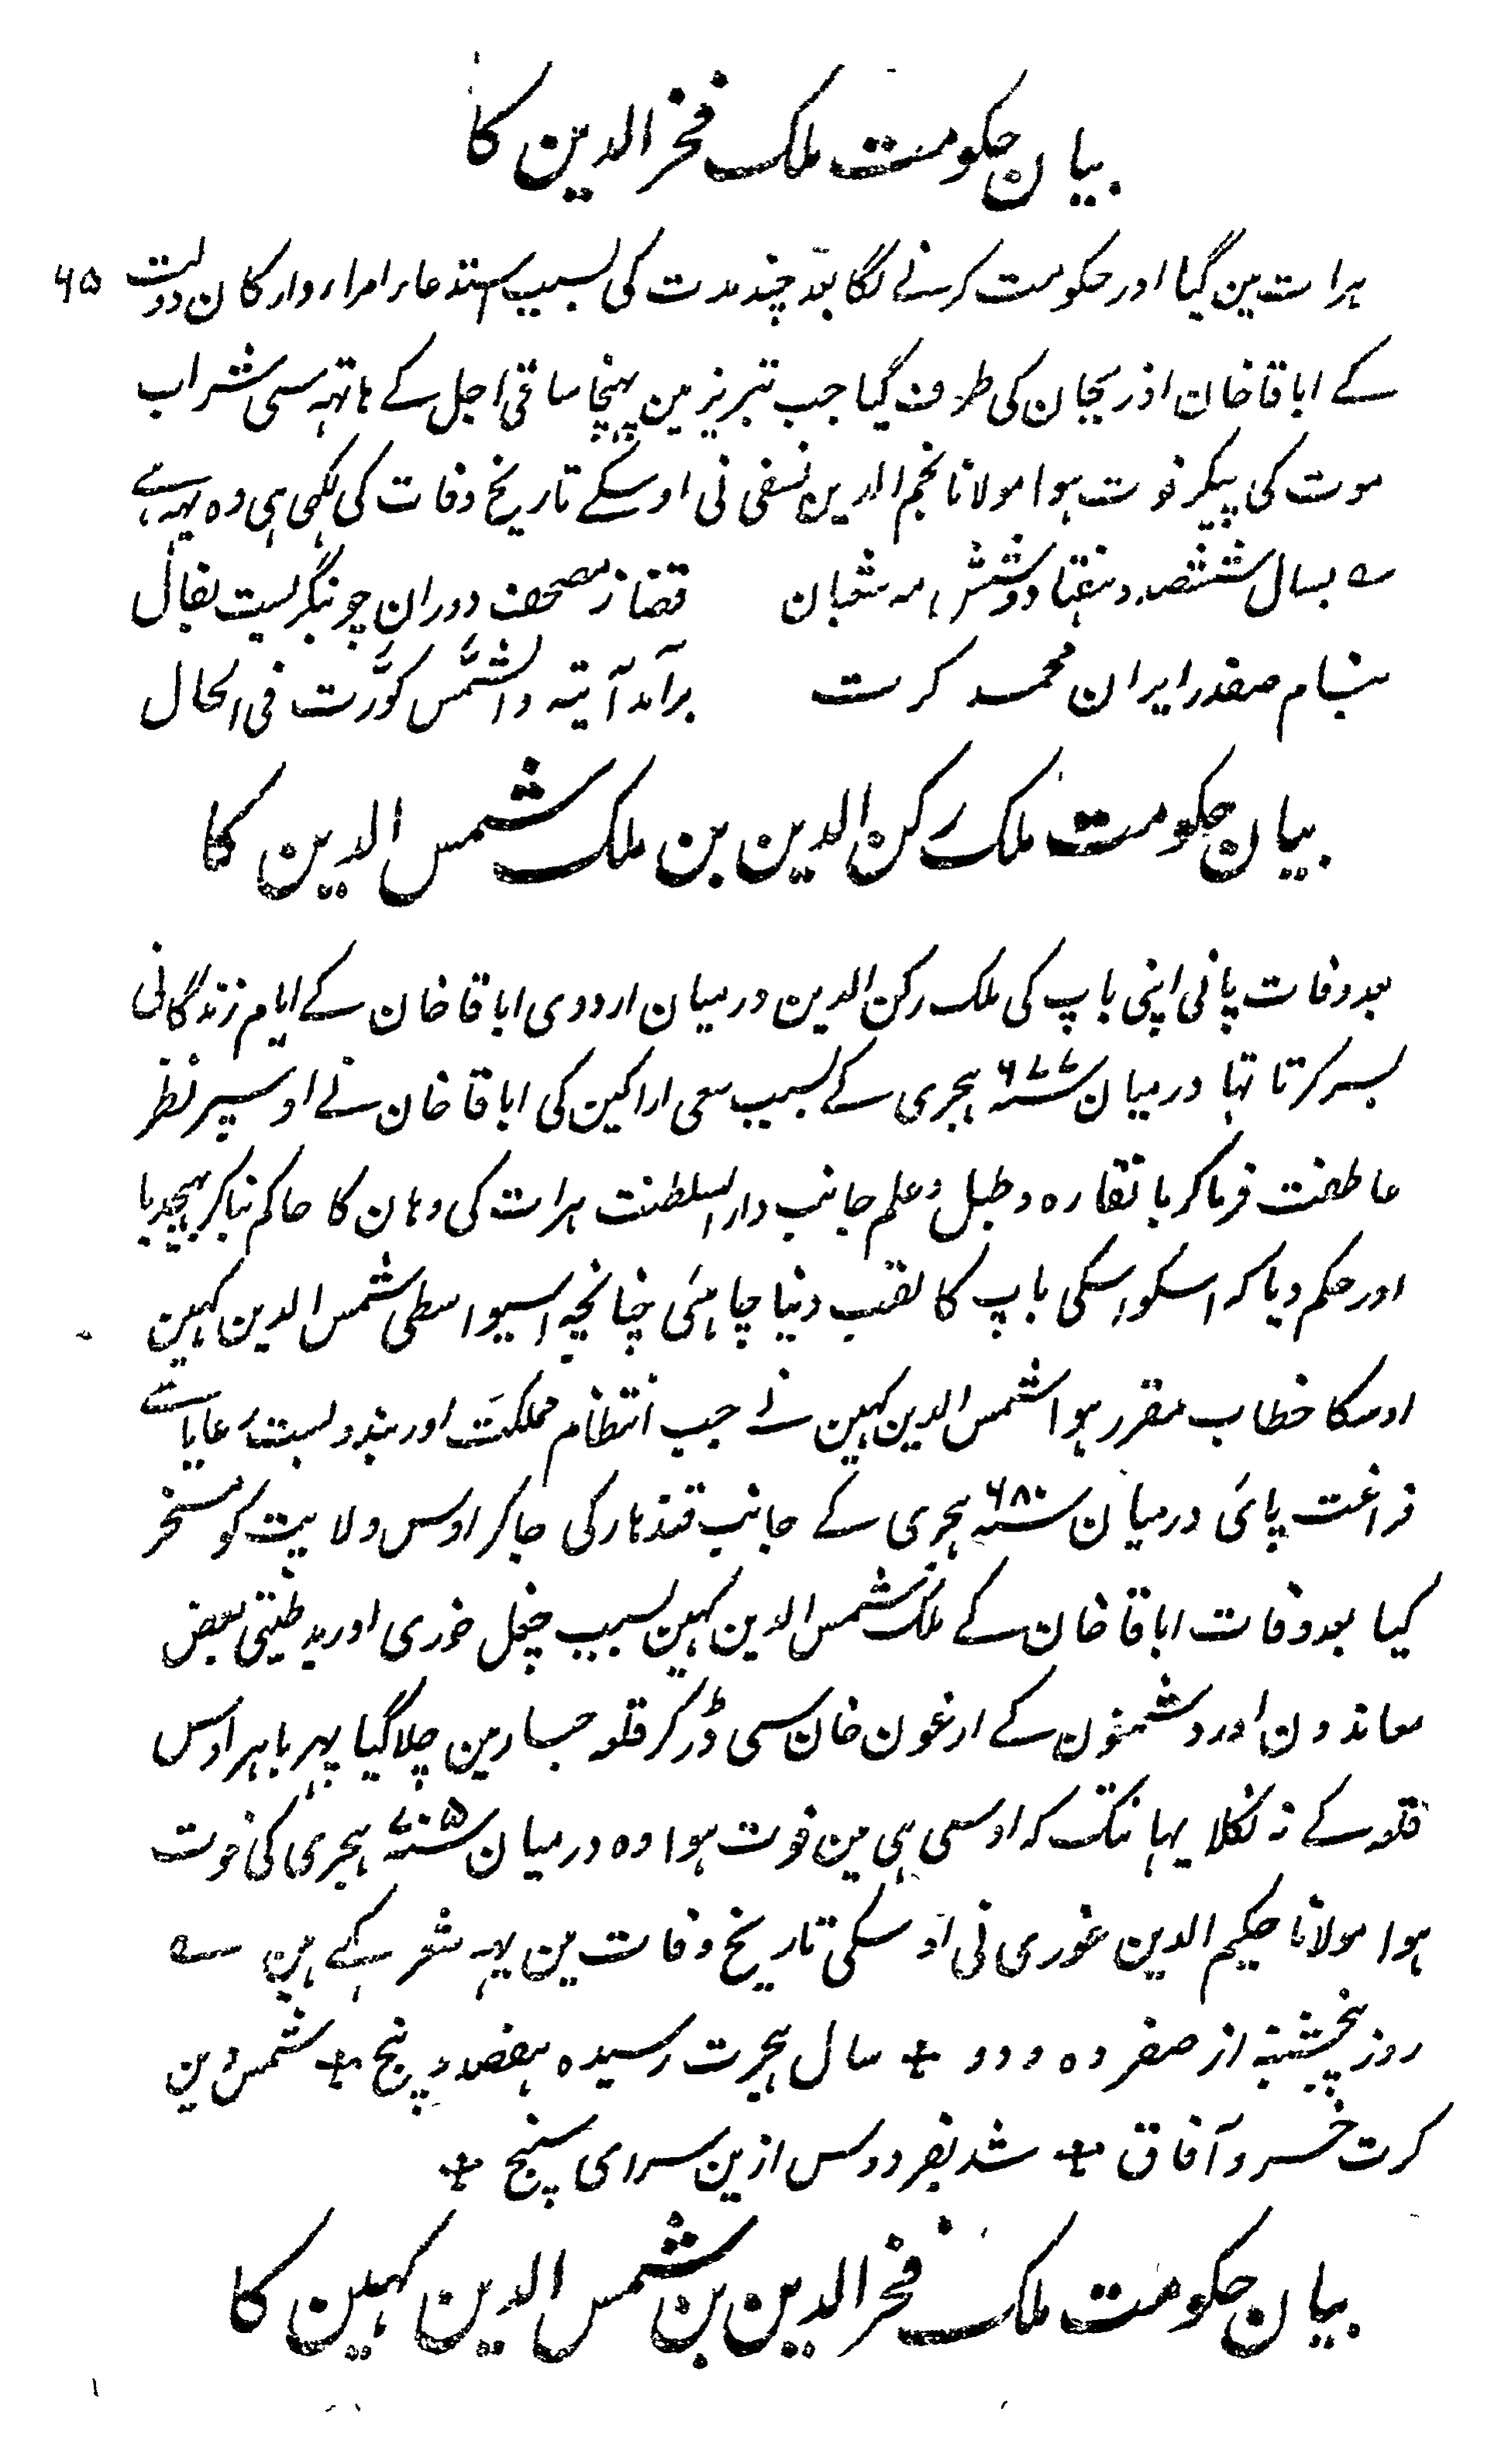 بیان حکومت ملک فخر الدین کا
ہرات مین گیا اور حکومت کرنے لگا بعد چند مدت کی بسبب استدعاء امراء و ارکان دولت ۶۵
کے اباقا خان اذربیجان کی طرف گیا جب تبریز مین پہنچا ساقی اجل کے ہاتہہ سی شراب
موت کی پیکر فوت ہوا مولانا نجم الدین نسفی نی اوسکے تاریخ وفات کی لکھی ہی وہ یہہ ہے
؎ بسال ششصد و ہفتاد و شش مہ شعبان قضا ز مصحف دوران چو بنگریست بفال
بنام صفدر ایران محمد کرت برآمد آیتہ والشّمس کوّرت فی الحال
بیان حکومت ملک رکن الدین بن ملک شمس الدین کا
بعد وفات پانی اپنی باپ کی ملک رکن الدین درمیان اردوی اباقا خان کے ایام زندگانی
بسر کرتا تہا درمیان سنہ ۶۷۷ ہجری کے بسبب سعی اراکین کی اباقا خان نے اوسپر نظر
عاطفت فرما کر با نقارہ و طبل و علم جانب دار السلطنت ہرات کی وہان کا حاکم بنا کر بہیجدیا
اور حکم دیا کہ اسکو اسکی باپ کا لقب دنیا چاہئی چنانچہ اسیواسطی شمس الدین کہین
اوسکا خطاب مقرر ہوا شمس الدین کہین نے جب انتظام مملکت اور بندوبست رعایا سے
فراغت پائی درمیان سنہ ۶۸۰ ہجری کے جانب قندہار کی جا کر اوس ولایت کو مسخر
کیا بعد وفات اباقا خان کے ملک شمس الدین کہین بسبب چغل خوری اور بد طینتی بعض
معاندون اور دشمنون کے ارغون خان سی ڈر کر قلعہ حسار مین چلا گیا پہر باہر اوس
قلعہ کے نہ نکلا یہانتک کہ اوسی ہی مین فوت ہوا وہ درمیان سنہ ۷۰۵ ہجری کی فوت
ہوا مولانا حکیم الدین غوری نی اوسکی تاریخ وفات مین یہہ شعر کہے ہین ؎
روز پنجشنبہ از صفر دہ و دو ٭ سال ہجرت رسیدہ ہفصد و پنج ٭ شمس دین
کرت خسرو آفاق ٭ شد بفردوس ازین سرای سپنج ٭
بیان حکومت ملک فخر الدین بن شمس الدین کہین کا